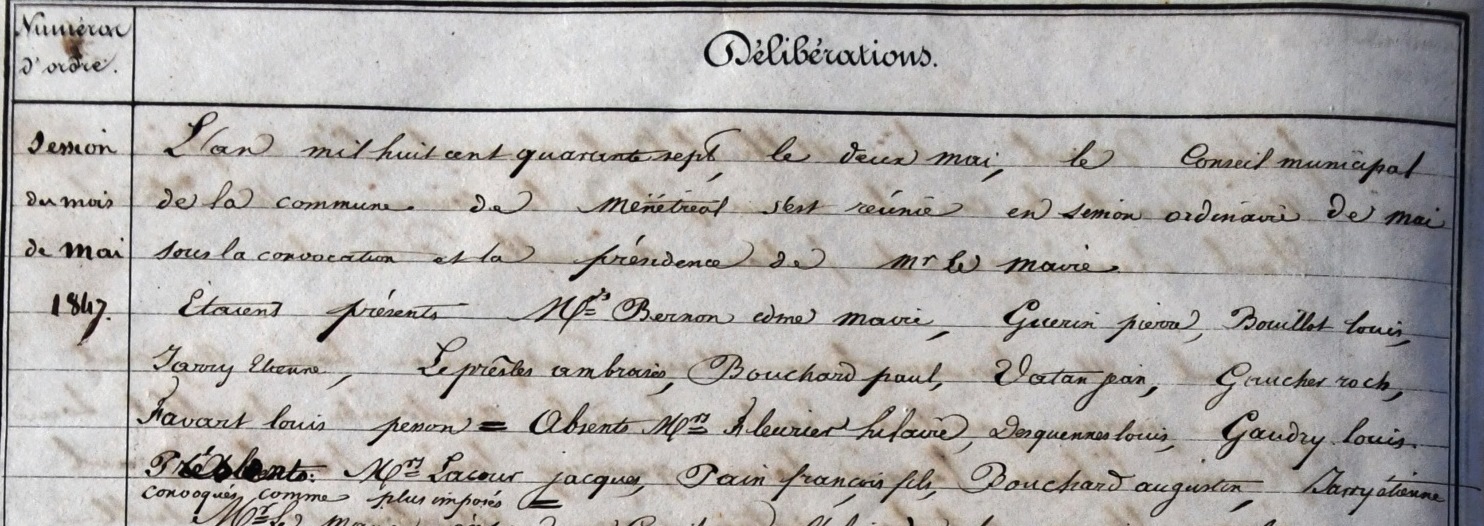 Numéros
d'ordre.
Délibérations.
Session
du mois
de mai
1847.
L'an mil huit cent quarante sept, le deux mai, le Conseil municipal
de la commune de Ménétréol s'est réunie en session ordinaire de mai
sous la convocation et la présidence de mr le maire.
Etaient présents Mrs Bernon edme maire, Guerin pierre, Bouillot louis,
Jarry Etienne, Leprêtes ambroise, Bouchard paul, Vatan jean, Gaucher roch,
Favart louis = Absents Mrs fleurier hilaire, Desquennes louis, Gaudry louis.
Présents. Mrs Lacour jacques, Pain françois fils, Bouchard augustin, Jarry étienne
convoqués comme plus imposés =
Mr le